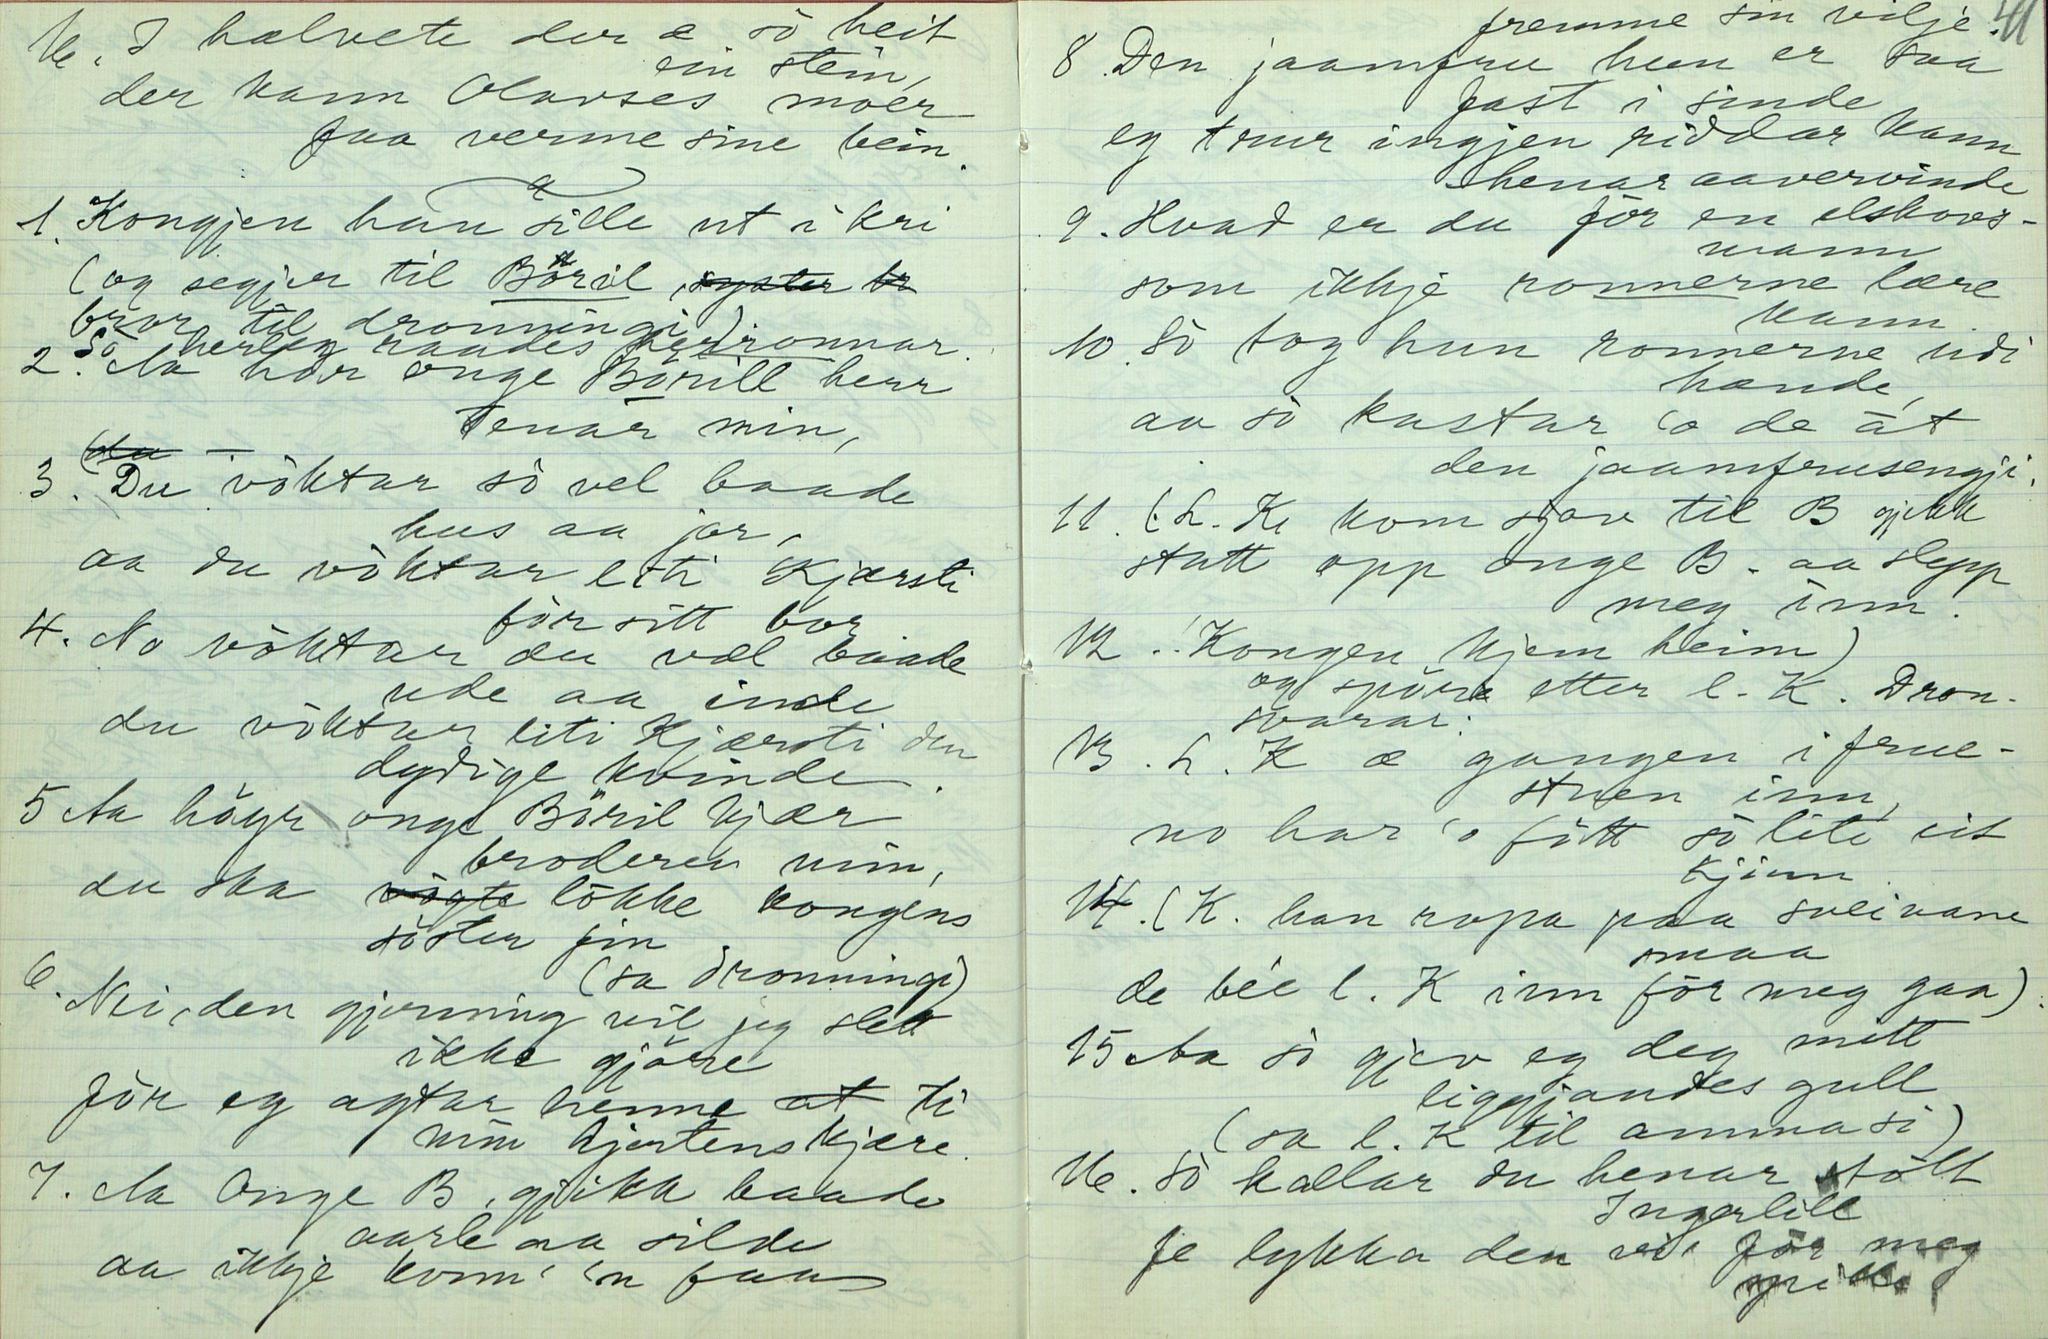 16. I hælvete der æ sò heit
ein stein,
der kann Olavses moer
faa verme sine bein.
1. Kongjen han sille ut i kri
(og segjer til Böril, syster
bror til dronningi)
Så herleg raades her ronnar.
2. Aa hör onge Börill herr
Tenar min,
(du
3. Du vöktar sò vel baade
hus aa jor,
aa du vöktar liti Kjærsti
för sitt bor
4. No vöktar du væl baade
ude aa inde
du vöktar liti Kjærsti den
dydige kvinde.
5 Aa höyr onge Böril kjær
broderen min,
du ska vögte lökke kongens
söster fin
(sa dronningi)
6. Nei, den gjerning vil jeg slett
ikke gjöre
för eg agtar henne at ti
min hjertens kjære.
7. Aa Onge B. gjikk baade
aarle aa silde
aa ikkje konn' 'n faa
41
fremme sin vilje.
8. Den jaamfru hun er saa
fast i sinde
eg trur ingjen riddar kann
henar aavervinde
9. Hvad er du för en elskovs-
mann
som ikkje ronnerne lære
kann.
10. Sò tog hun ronnerne udi
hænde,
aa sò kastar 'o de åt
den jaamfrusengji.
11. (L. K. kom sjav til B gjekk
statt opp onge B. aa slepp
meg inn.
12. (Kongen kjem heim)
og spörr etter l. K. Dron.
svarar:
13. L. K æ gangen i frue-
stuen inn,
no har 'o fött sò lite eit
kjinn.
14. (K. han ropa paa sveinane
smaa
de béé l. K inn för meg gaa).
15 Aa sò gjev eg deg mitt
liggjandes gull
(sa l. K til amma si)
16. Sò kallar du henar stölt
Ingerlill
fe lykka den vi' för meg